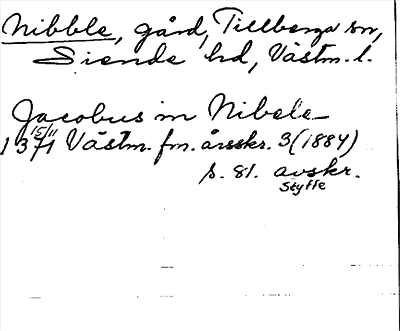 Nibble, gård, Tillberga sn,
Siende hd, Västm. l.
Jacobus in Nibele
1371 15/11 Västm. fm. årsskr. 3 (1884)
s. 81. avskr.
Styffe